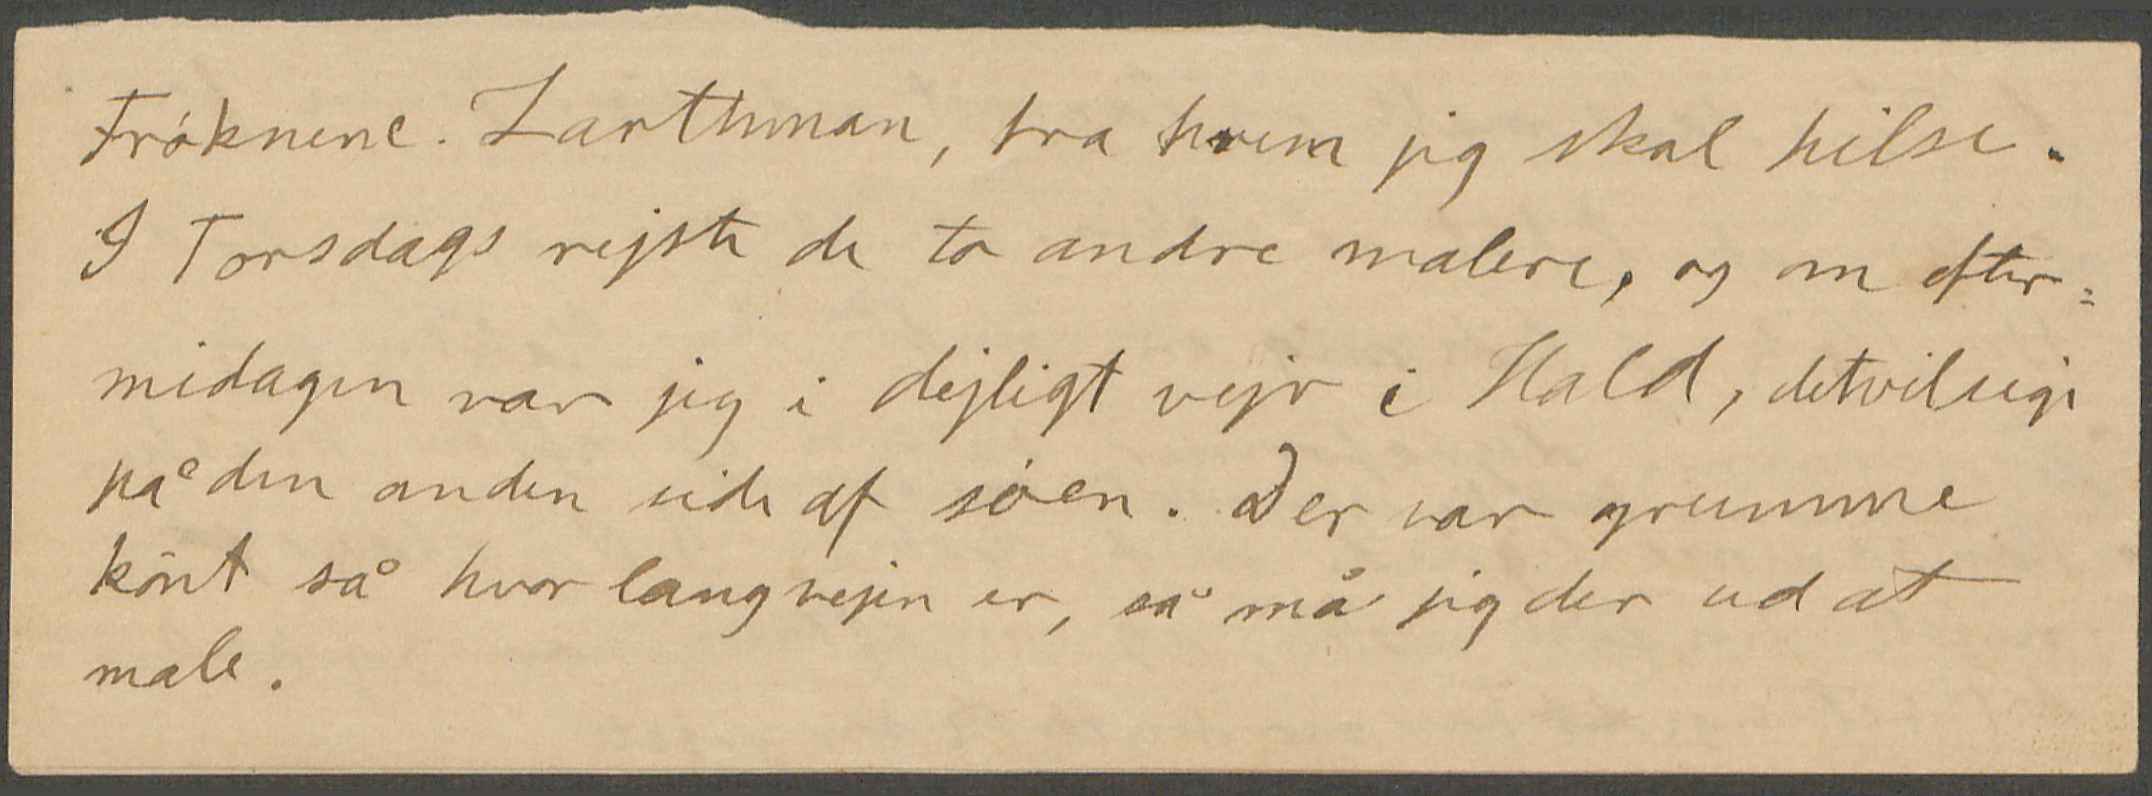 Frøknene. Zarthman, fra hvem jeg skal hilse.
I Torsdags rejste de to andre malere, og om efter=
midagen var jeg i dejligt vejr i Hald, detvilsige
på den anden side af søen. Der var grumme
kønt så hvor lang vejen er, så må jeg der ud at
male.